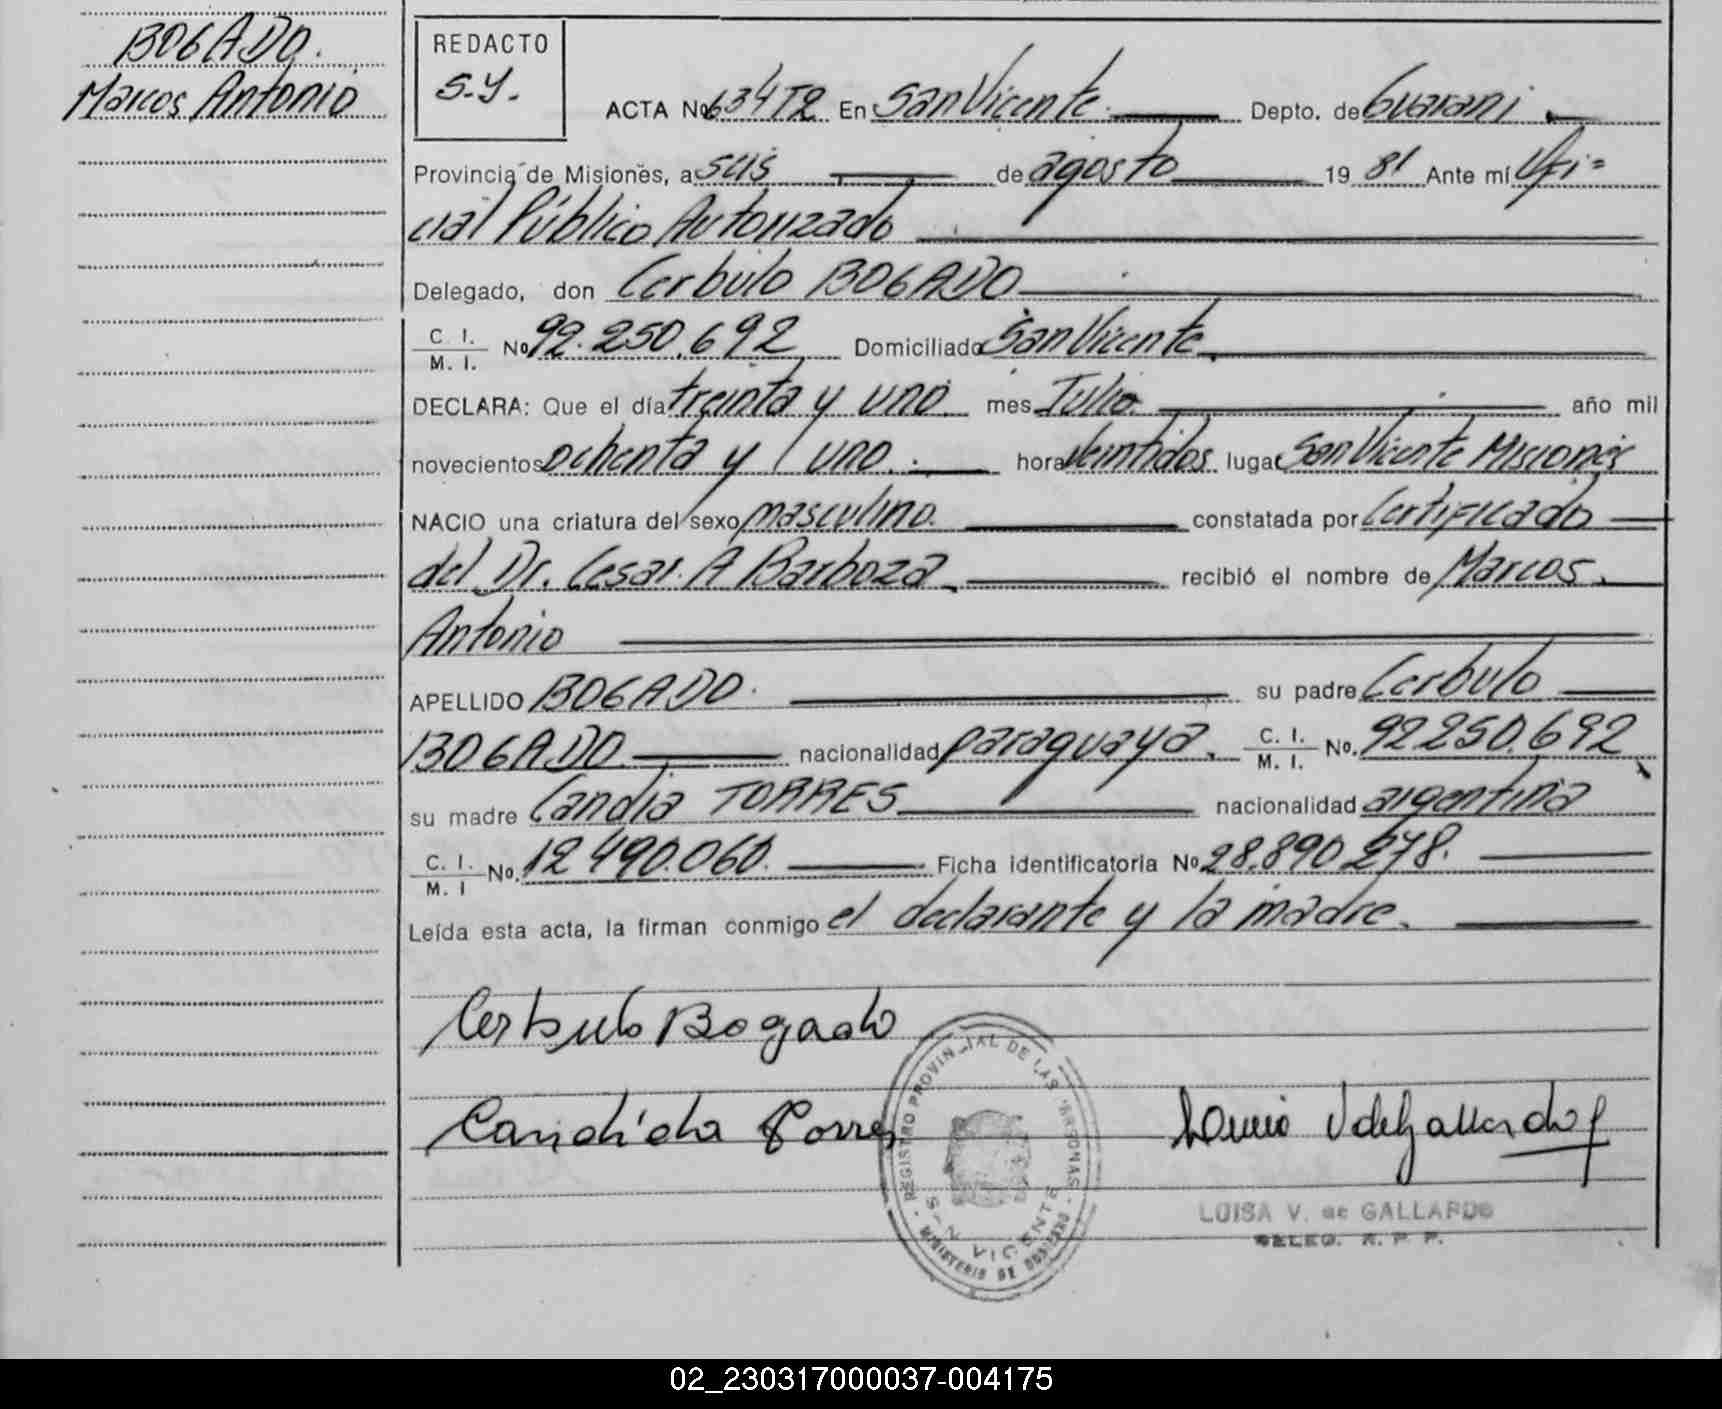 BOGADO.
Marcos Antonio
REDACTO
S.Y.
ACTA Nº 634T2 En San Vicente. Depto. de Guarani
Provincia de Misiones, a seis de agosto 19 81 Ante mí Ofi=
cial Público Autorizado
Delegado, don Cerbulo BOGADO
C. I. / M. I. Nº 92.250.692 Domiciliado San Vicente
DECLARA: Que el día treinta y uno mes Julio. año mil
novecientos ochenta y uno. hora veintidos lugar San Vicente Misiones
NACIO una criatura del sexo masculino. constatada por Certificado
del Dr. Cesar. A Barboza recibió el nombre de Marcos
Antonio
APELLIDO BOGADO. su padre Cerbulo
BOGADO nacionalidad paraguaya. C. I. / M. I. Nº. 92250.692
su madre Candia TORRES nacionalidad argentina
C. I. / M. I Nº. 12490.060. Ficha identificatoria Nº 28.890.278.
Leída esta acta, la firman conmigo el declarante y la madre.
Cerbulo Bogado
Candida Torres
REGISTRO PROVINCIAL DE LAS PERSONAS
SAN VICENTE
MINISTERIO DE GOBIERNO
V de Gallardo
LUISA V. de GALLARDO
DELEG. R. P. P.
02_230317000037-004175